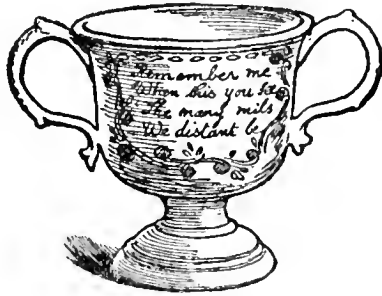 Remember me
When this you see
Tho many mils
We distant be